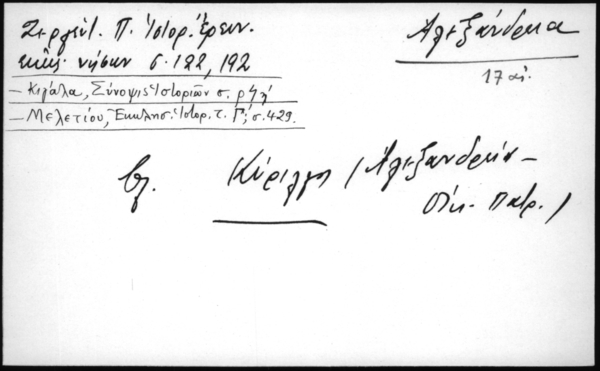 Ζερλέντ. Π. Ἱστορ. Ἔρευν.
ἐκκλ. νήσων σ. 122, 192
– Κιγάλα, Σύνοψις Ἱστοριῶν σ. ρϟή
– Μελετίου, Ἐκκλησ. Ἱστορ. τ. Γ΄, σ. 429.
Ἀλεξάνδρεια
17 αἰ.
βλ. Κύριλλος (Ἀλεξανδρείας –
Οἰκ. Πατρ.)